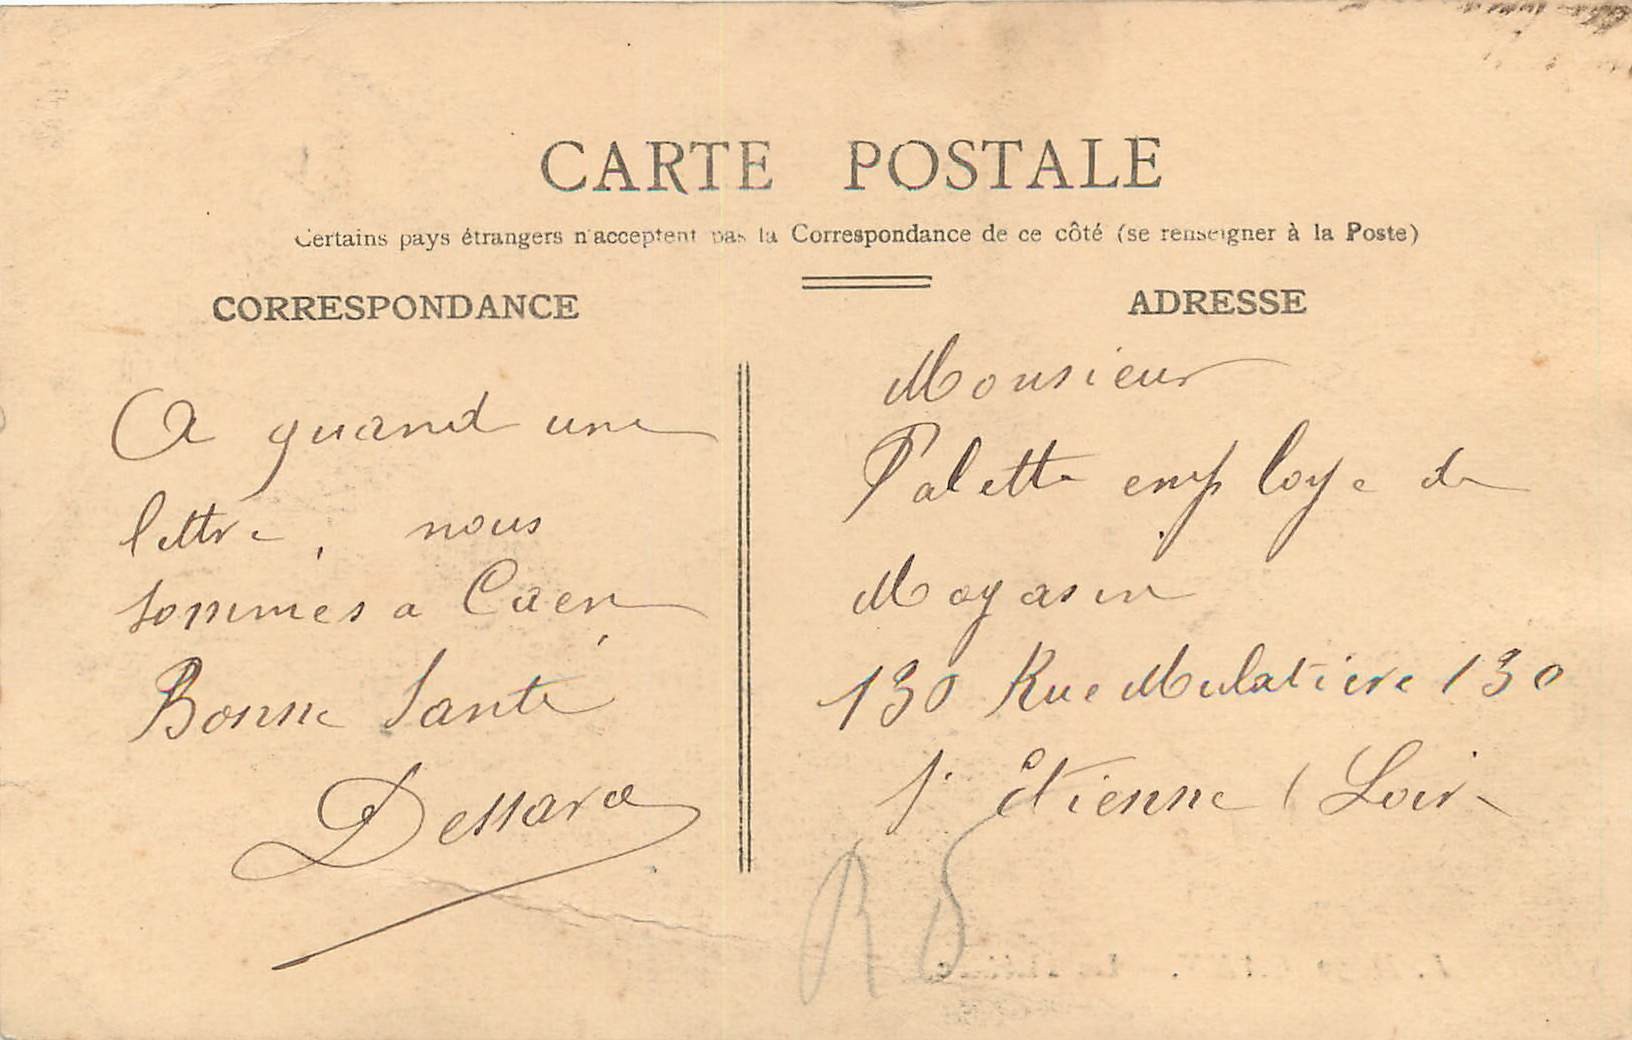 CARTE POSTALE
Certains pays étrangers n'acceptent pas la Correspondance de ce côté (se renseigner à la Poste)
CORRESPONDANCE
A quand une
lettre, nous
sommes a Caen,
Bonne Santé
ADRESSE
Monsieur
Palette employe de
Magasin
130 Rue Mulatiere 130
St Etienne (Loire